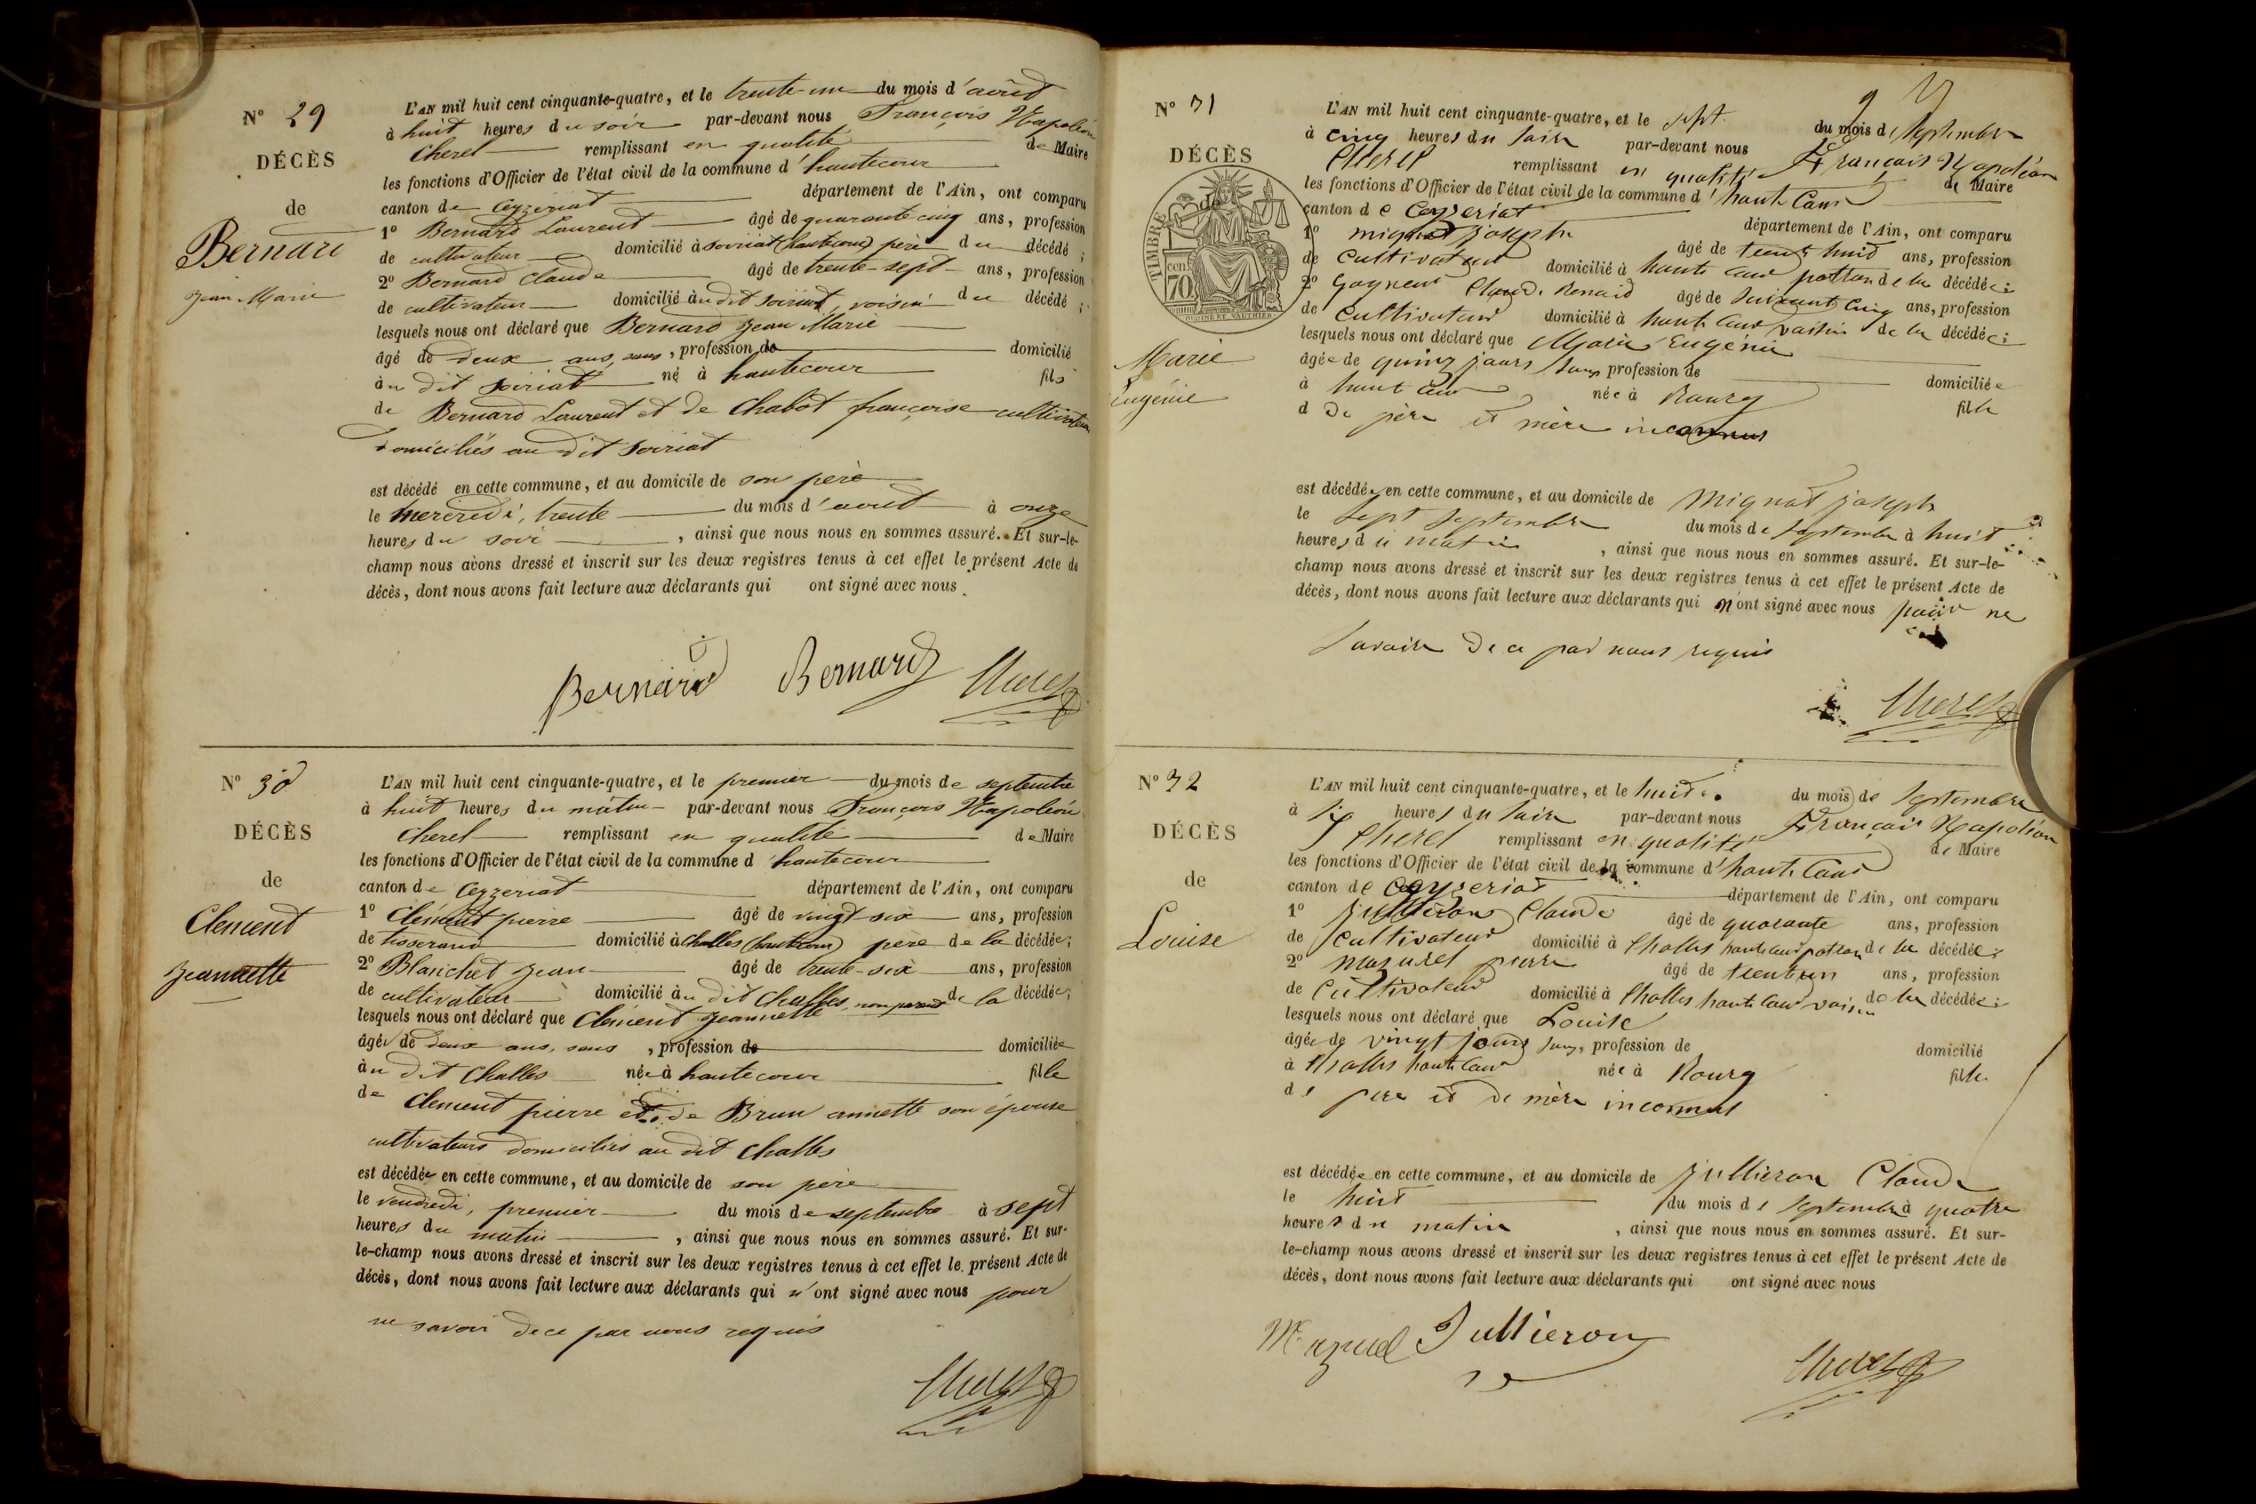 N° 29
DÉCÈS
de
Bernard
Jean Marie
L'AN mil huit cent cinquante-quatre, et le trente un du mois d'août
à huit heures du soir par-devant nous François Napoléon
Cherel remplissant en qualité de Maire
les fonctions d'Officier de l'état civil de la commune d'hautecour
canton de Ceyzeriat département de l'Ain, ont comparu
1° Bernard Laurent âgé de quarante cinq ans, profession
de cultivateur domicilié à soiriat (hautecour) père du décédé ;
2° Bernard Claude âgé de trente-sept ans, profession
de cultivateur domicilié au dit soiriat, voisin du décédé ;
lesquels nous ont déclaré que Bernard Jean Marie
âgé de deux ans, sans, profession de domicilié
au dit soiriat né à hautecour fils
de Bernard Laurent et de Chabot françoise cultivateurs
domiciliés au dit soiriat
est décédé en cette commune, et au domicile de son père
le mercredi, trente du mois d'août à onze
heures du soir, ainsi que nous nous en sommes assuré. Et sur-le-
champ nous avons dressé et inscrit sur les deux registres tenus à cet effet le présent Acte de
décès, dont nous avons fait lecture aux déclarants qui ont signé avec nous.
Bernard Bernard Cherel
N° 30
DÉCÈS
de
Clement
Jeannette
L'AN mil huit cent cinquante-quatre, et le premier du mois de septembre
à huit heures du matin par-devant nous François Napoléon
Cherel remplissant en qualité de Maire
les fonctions d'Officier de l'état civil de la commune d'hautecour
canton de Ceyzeriat département de l'Ain, ont comparu
1° Clément pierre âgé de vingt six ans, profession
de tisserand domicilié à Challes (hautecour) père de la décédée ;
2° Blanchet Jean âgé de trente-six ans, profession
de cultivateur domicilié au dit Challes, non parent de la décédée ;
lesquels nous ont déclaré que Clement Jeannette
âgée de deux ans, sans, profession de domiciliée
au dit Challes née à hautecour fille
de Clement pierre et de Brun annette son épouse
cultivateurs domiciliés au dit Challes
est décédée en cette commune, et au domicile de son père
le vendredi, premier du mois de septembre à sept
heures du matin, ainsi que nous nous en sommes assuré. Et sur-
le-champ nous avons dressé et inscrit sur les deux registres tenus à cet effet le présent Acte de
décès, dont nous avons fait lecture aux déclarants qui n'ont signé avec nous pour
ne savoir de ce par nous requis
Cherel
N° 31
DÉCÈS
de
TIMBRE
70 cen
Marie
Eugénie
L'AN mil huit cent cinquante-quatre, et le sept du mois de Septembre
à cinq heures du soire par-devant nous François Napoléon
Cherel remplissant en qualité de Maire
les fonctions d'Officier de l'état civil de la commune d'haute Cour
canton de Ceyzeriat département de l'Ain, ont comparu
1° mignot joseph âgé de trente huit ans, profession
de Cultivateur domicilié à haute Cour patron de la décédée ;
2° Gagneur Claude Renaid âgé de soixante Cinq ans, profession
de Cultivateur domicilié à haute Cour voisin de la décédée ;
lesquels nous ont déclaré que Marie Eugénie
âgée de quinz jours sans profession de domiciliée
à haute Cour née à Bourg fille
d De père et mère inconnus
est décédée en cette commune, et au domicile de Mignot joseph
le sept Septembre du mois de Septembre à huit
heures du matin, ainsi que nous nous en sommes assuré. Et sur-le-
champ nous avons dressé et inscrit sur les deux registres tenus à cet effet le présent Acte de
décès, dont nous avons fait lecture aux déclarants qui n'ont signé avec nous pour ne
savoire de ce par nous requis
Cherel
N° 32
DÉCÈS
de
Louise
L'AN mil huit cent cinquante-quatre, et le huit du mois de Septembre
à six heures du soire par-devant nous François Napoléon
Cherel remplissant en qualité de Maire
les fonctions d'Officier de l'état civil de la commune d'haute Cour
canton de Ceyzeriat département de l'Ain, ont comparu
1° Jullieron Claude âgé de quarante ans, profession
de Cultivateur domicilié à Challes haute Cour patron de la décédée ;
2° mazurel pierre âgé de trente un ans, profession
de Cultivateur domicilié à Challes haute Cour voisin de la décédée ;
lesquels nous ont déclaré que Louise
âgée de vingt jours sans, profession de domicilié
à Challes haute Cour née à Bourg fille
de père et de mère inconnus
est décédée en cette commune, et au domicile de Jullieron Claude
le huit du mois de Septembre à quatre
heures du matin, ainsi que nous nous en sommes assuré. Et sur-
le-champ nous avons dressé et inscrit sur les deux registres tenus à cet effet le présent Acte de
décès, dont nous avons fait lecture aux déclarants qui ont signé avec nous
Mazuel Jullieron
Cherel